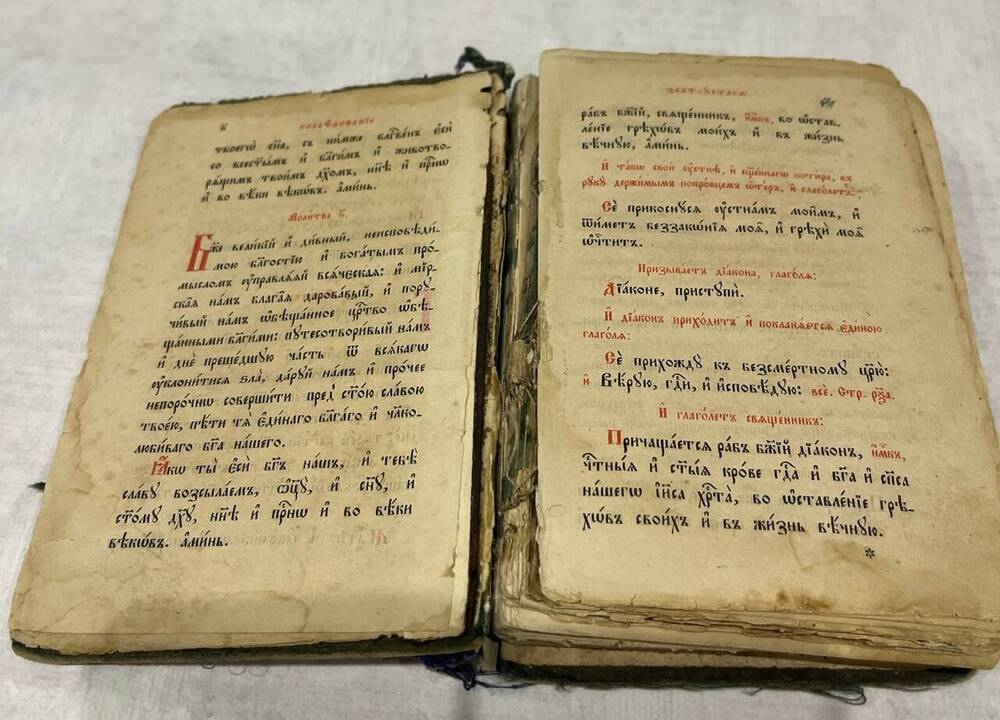 послѣдованіе
твоегѡ сн҃а, съ ни́мже блгⷭ҇ве́нъ є҆сѝ
со всест҃ы́мъ и҆ бл҃ги́мъ и҆ животво-
рѧ́щимъ твои́мъ дх҃омъ, нн҃ѣ и҆ при́снѡ
и҆ во вѣ́ки вѣкѡ́въ. а҆ми́нь.
Моли́тва
Бж҃е вели́кїй и҆ ди́вный, неисповѣди́-
мою бл҃гостїю и҆ бога́тымъ про́-
мысломъ ᲂу҆правлѧ́ѧй всѧ́чєскаѧ: и҆ мїр-
ска̑ѧ на́мъ блага̑ѧ дарова́вый, и҆ порꙋ-
чи́вый на́мъ ѡ҆бѣща́нное црⷭ҇тво ѡ҆бѣ-
ща́нными бл҃ги́ми: пꙋтесотвори́вый на́мъ
и҆ днѐ преше́дшꙋю ча́сть ѿ всѧ́кагѡ
ᲂу҆клони́тисѧ ѕла̀, да́рꙋй на́мъ и҆ про́чее
непоро́чнѡ соверши́ти пред̾ ст҃о́ю сла́вою
твое́ю, пѣ́ти тѧ̀ є҆ди́наго бл҃га́го и҆ чл҃ко-
люби́ваго бг҃а на́шего.
Ꙗ҆́кѡ ты̀ є҆сѝ бг҃ъ на́шъ, и҆ тебѣ̀
сла́вꙋ возсыла́емъ, ѻ҆ц҃ꙋ̀, и҆ сн҃ꙋ, и҆
ст҃о́мꙋ дх҃ꙋ, нн҃ѣ и҆ при́снѡ и҆ во вѣ́ки
вѣкѡ́въ. а҆ми́нь.
златоꙋстагѡ
ра́бъ бж҃їй, свѧще́нникъ, и҆́мкъ, во ѡ҆ставле́-
ле́нїе грѣхѡ́въ мои́хъ и҆ въ жи́знь
вѣ́чнꙋю, а҆ми́нь.
И҆ та́кѡ свои̑ ᲂу҆стнѣ̀, и҆ сщ҃е́ннагѡ поти́ра, въ
рꙋкꙋ̀ держи́мымъ покро́вцемъ ѡ҆те́ръ, и҆ глаго́летъ:
Сѐ прикоснꙋ́сѧ ᲂу҆стна́мъ мои̑мъ, и҆
ѿи́метъ беззакѡ́нїѧ моѧ̑, и҆ грѣхѝ моѧ̑
ѡ҆чⷭ҇титъ.
Призыва́етъ дїа́кона, глаго́лѧ:
Дїа́коне, пристꙋпѝ.
И҆ дїа́конъ прихо́дитъ и҆ покланѧ́етсѧ є҆ди́ною
глаго́лѧ:
Сѐ прихождꙋ̀ къ безсме́ртномꙋ цр҃ю̀:
и҆ Вѣ́рꙋю, гдⷭ҇и, и҆ и҆сповѣ́дꙋю: всѐ. Стр.
И҆ глаго́летъ свѧще́нникъ:
Причаща́етсѧ ра́бъ бж҃їй дїа́конъ, и҆́мкъ,
чⷭ҇тны́ѧ и҆ ст҃ы́ѧ кро́ве гдⷭ҇а и҆ бг҃а и҆ сп҃са
на́шегѡ і҆и҃са хрⷭ҇та̀, во ѡ҆ставле́нїе грѣ-
хѡ́въ свои́хъ и҆ въ жи́знь вѣ́чнꙋю.
*